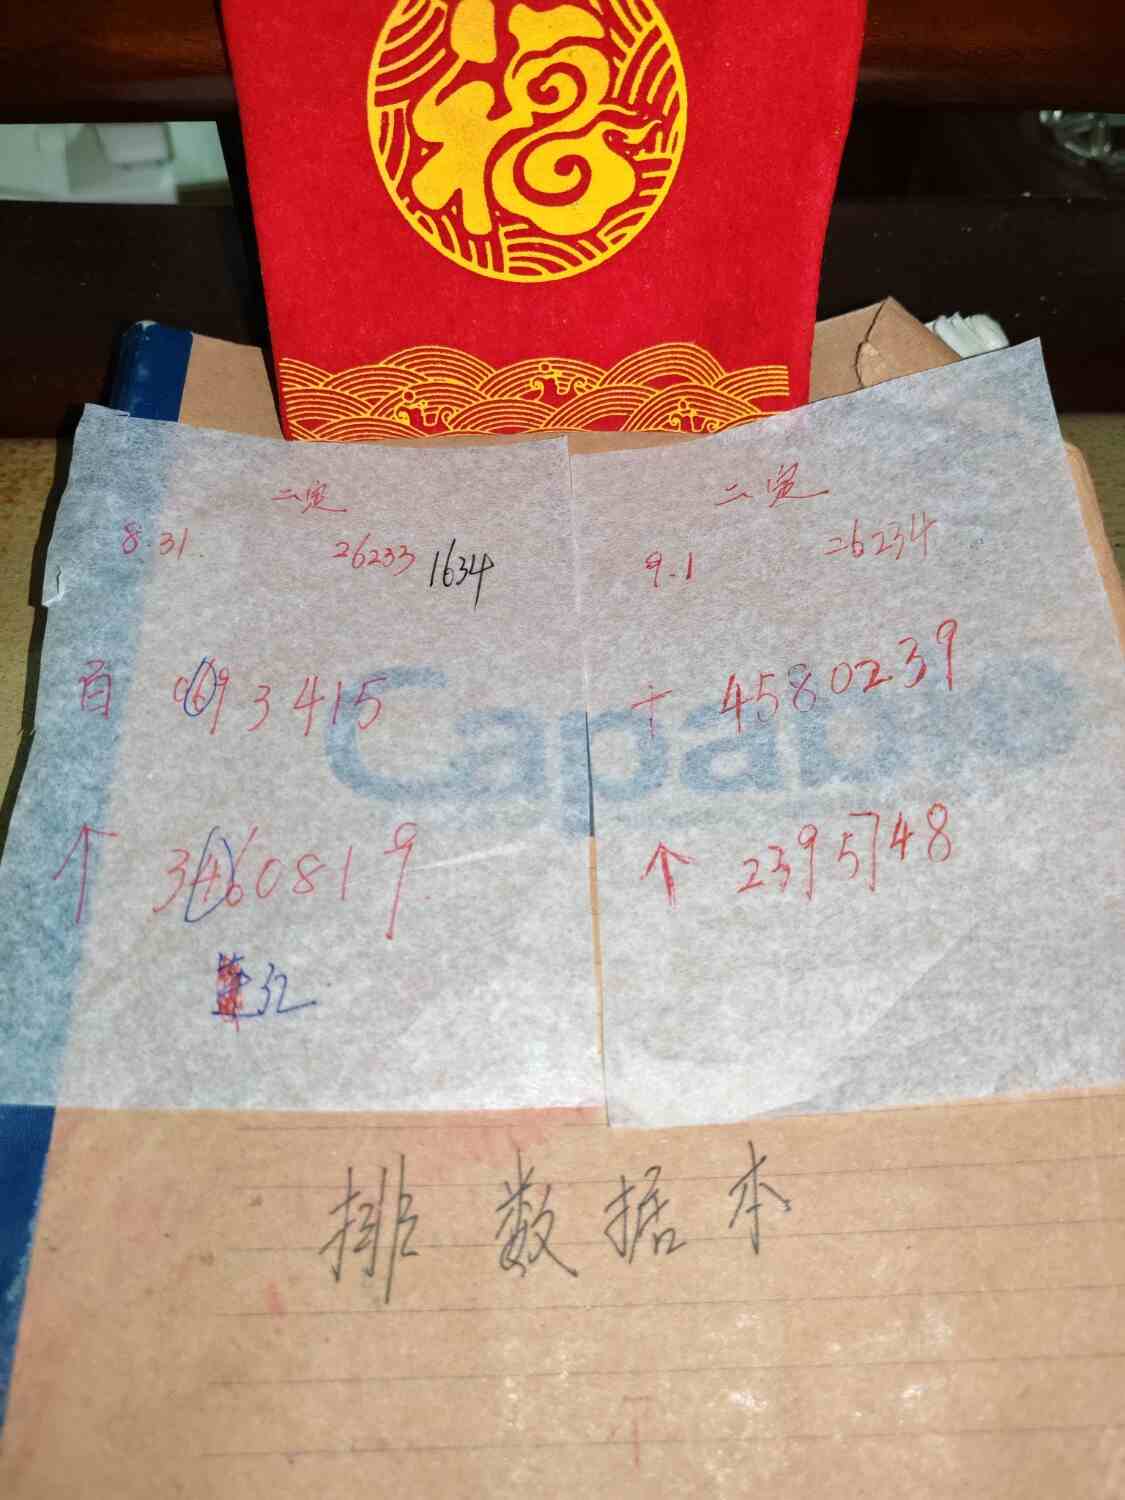 福
二定
8.31.
26233 1634
百 0693415
个 3460819.
连红
二定
9.1
26234
十 4580239
个 2395748
Capable
排数据本